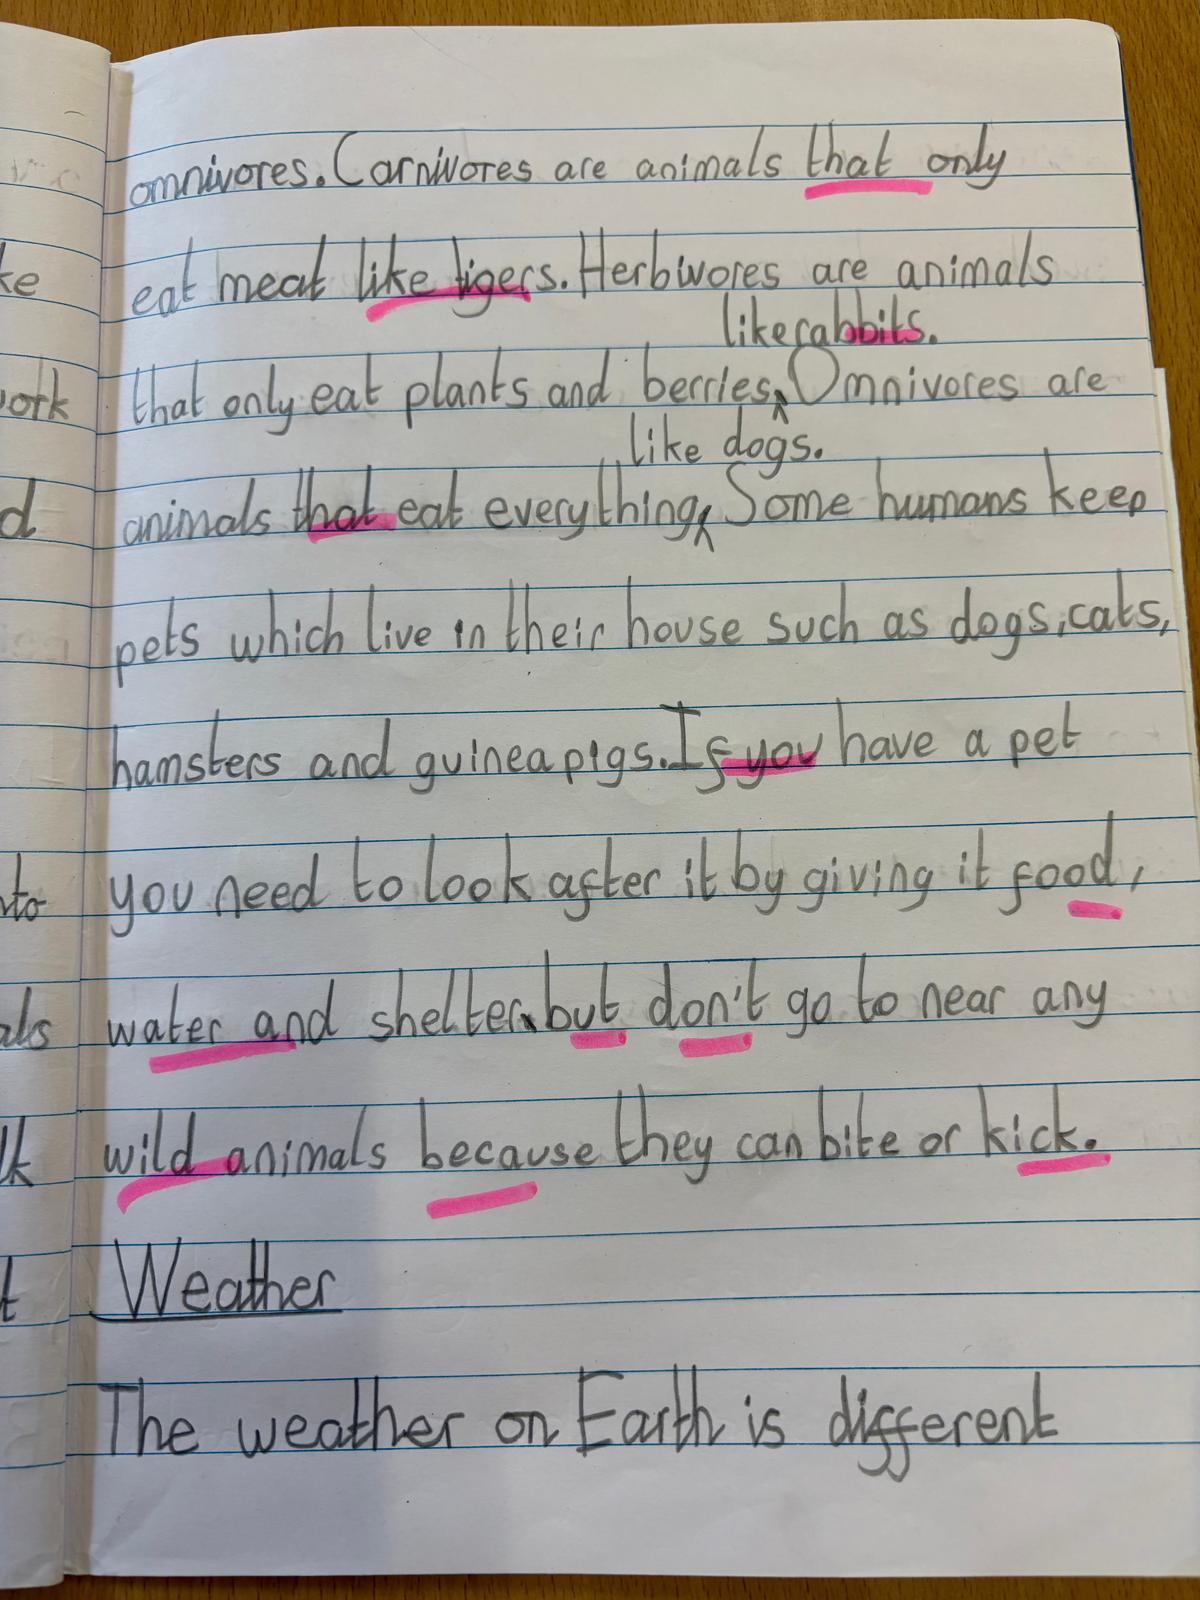 omnivores. Carnivores are animals that only
eat meat like tigers. Herbivores are animals
like rabbits.
that only eat plants and berries^ Omnivores are
like dogs.
animals that eat everything^ Some humans keep
pets which live in their house such as dogs, cats,
hamsters and guinea pigs. If you have a pet
you need to look after it by giving it food,
water and shelter, but don't go to near any
wild animals because they can bite or kick.
Weather
The weather on Earth is different